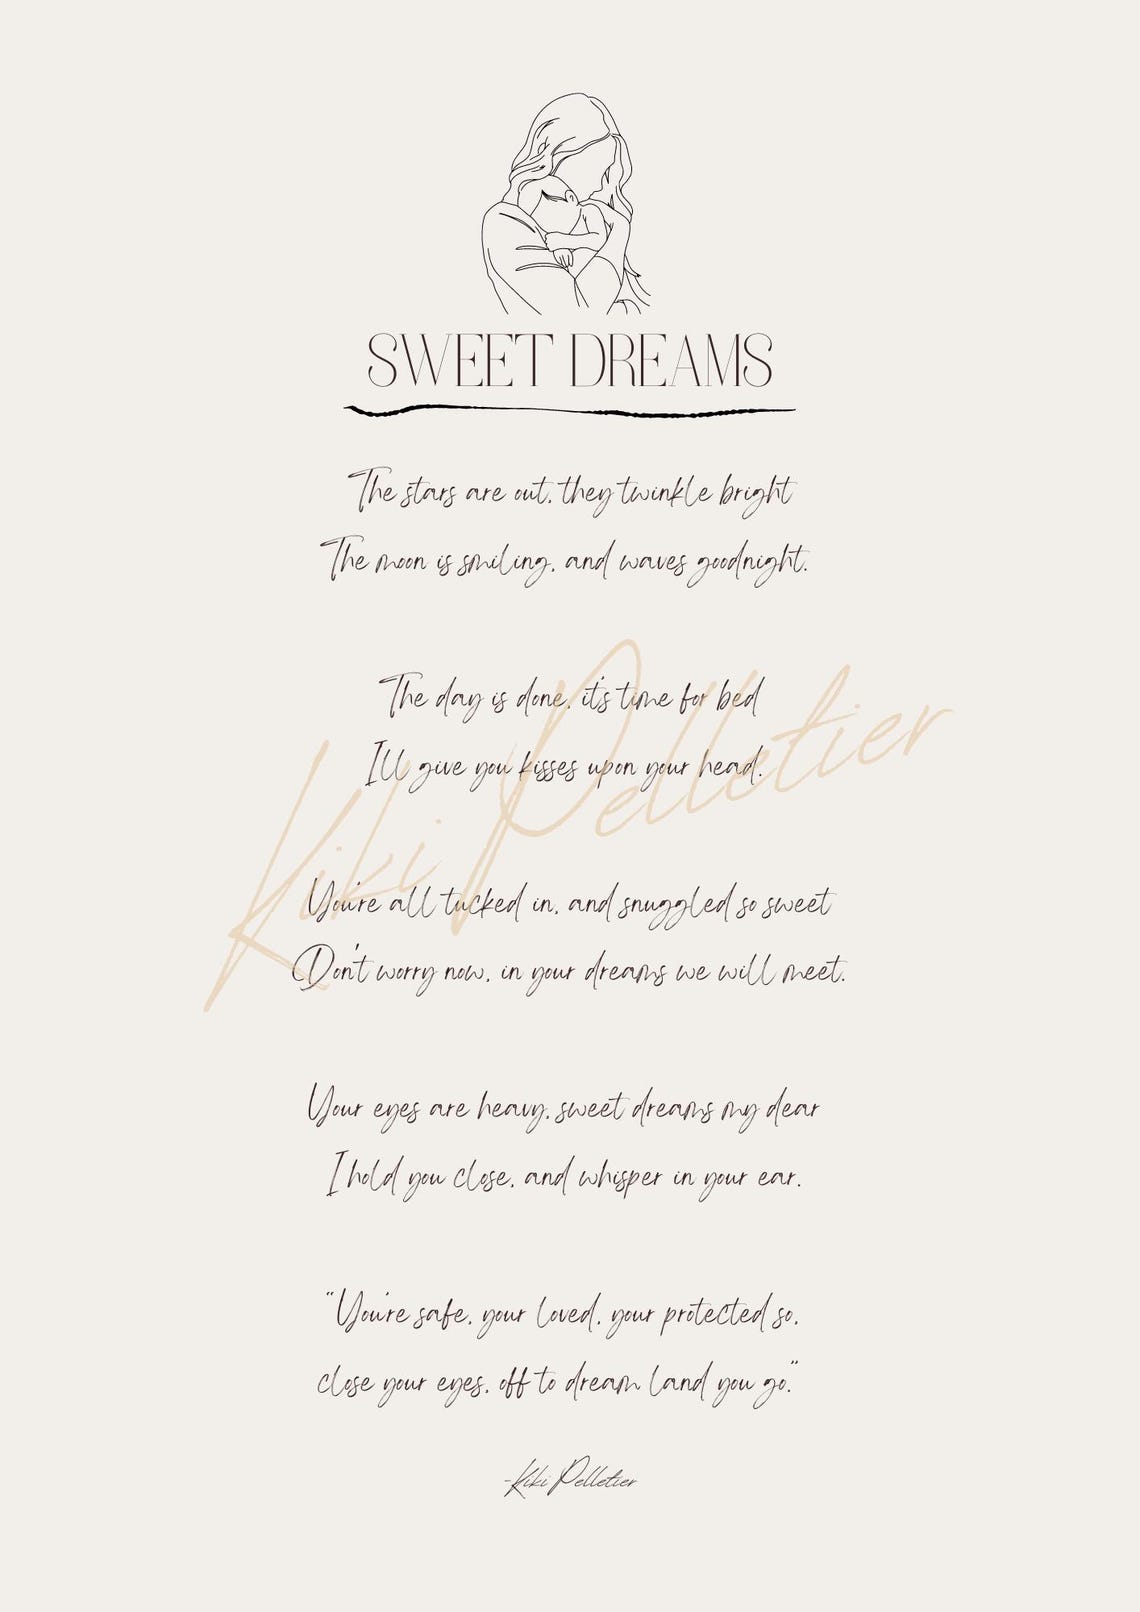 SWEET DREAMS
The stars are out, they twinkle bright
The moon is smiling, and waves goodnight.
The day is done, it's time for bed
I'll give you kisses upon your head.
Kiki Pelletier
You're all tucked in, and snuggled so sweet
Don't worry now, in your dreams we will meet.
Your eyes are heavy, sweet dreams my dear
I hold you close, and whisper in your ear.
"You're safe, your loved, your protected so,
close your eyes, off to dream land you go."
-Kiki Pelletier